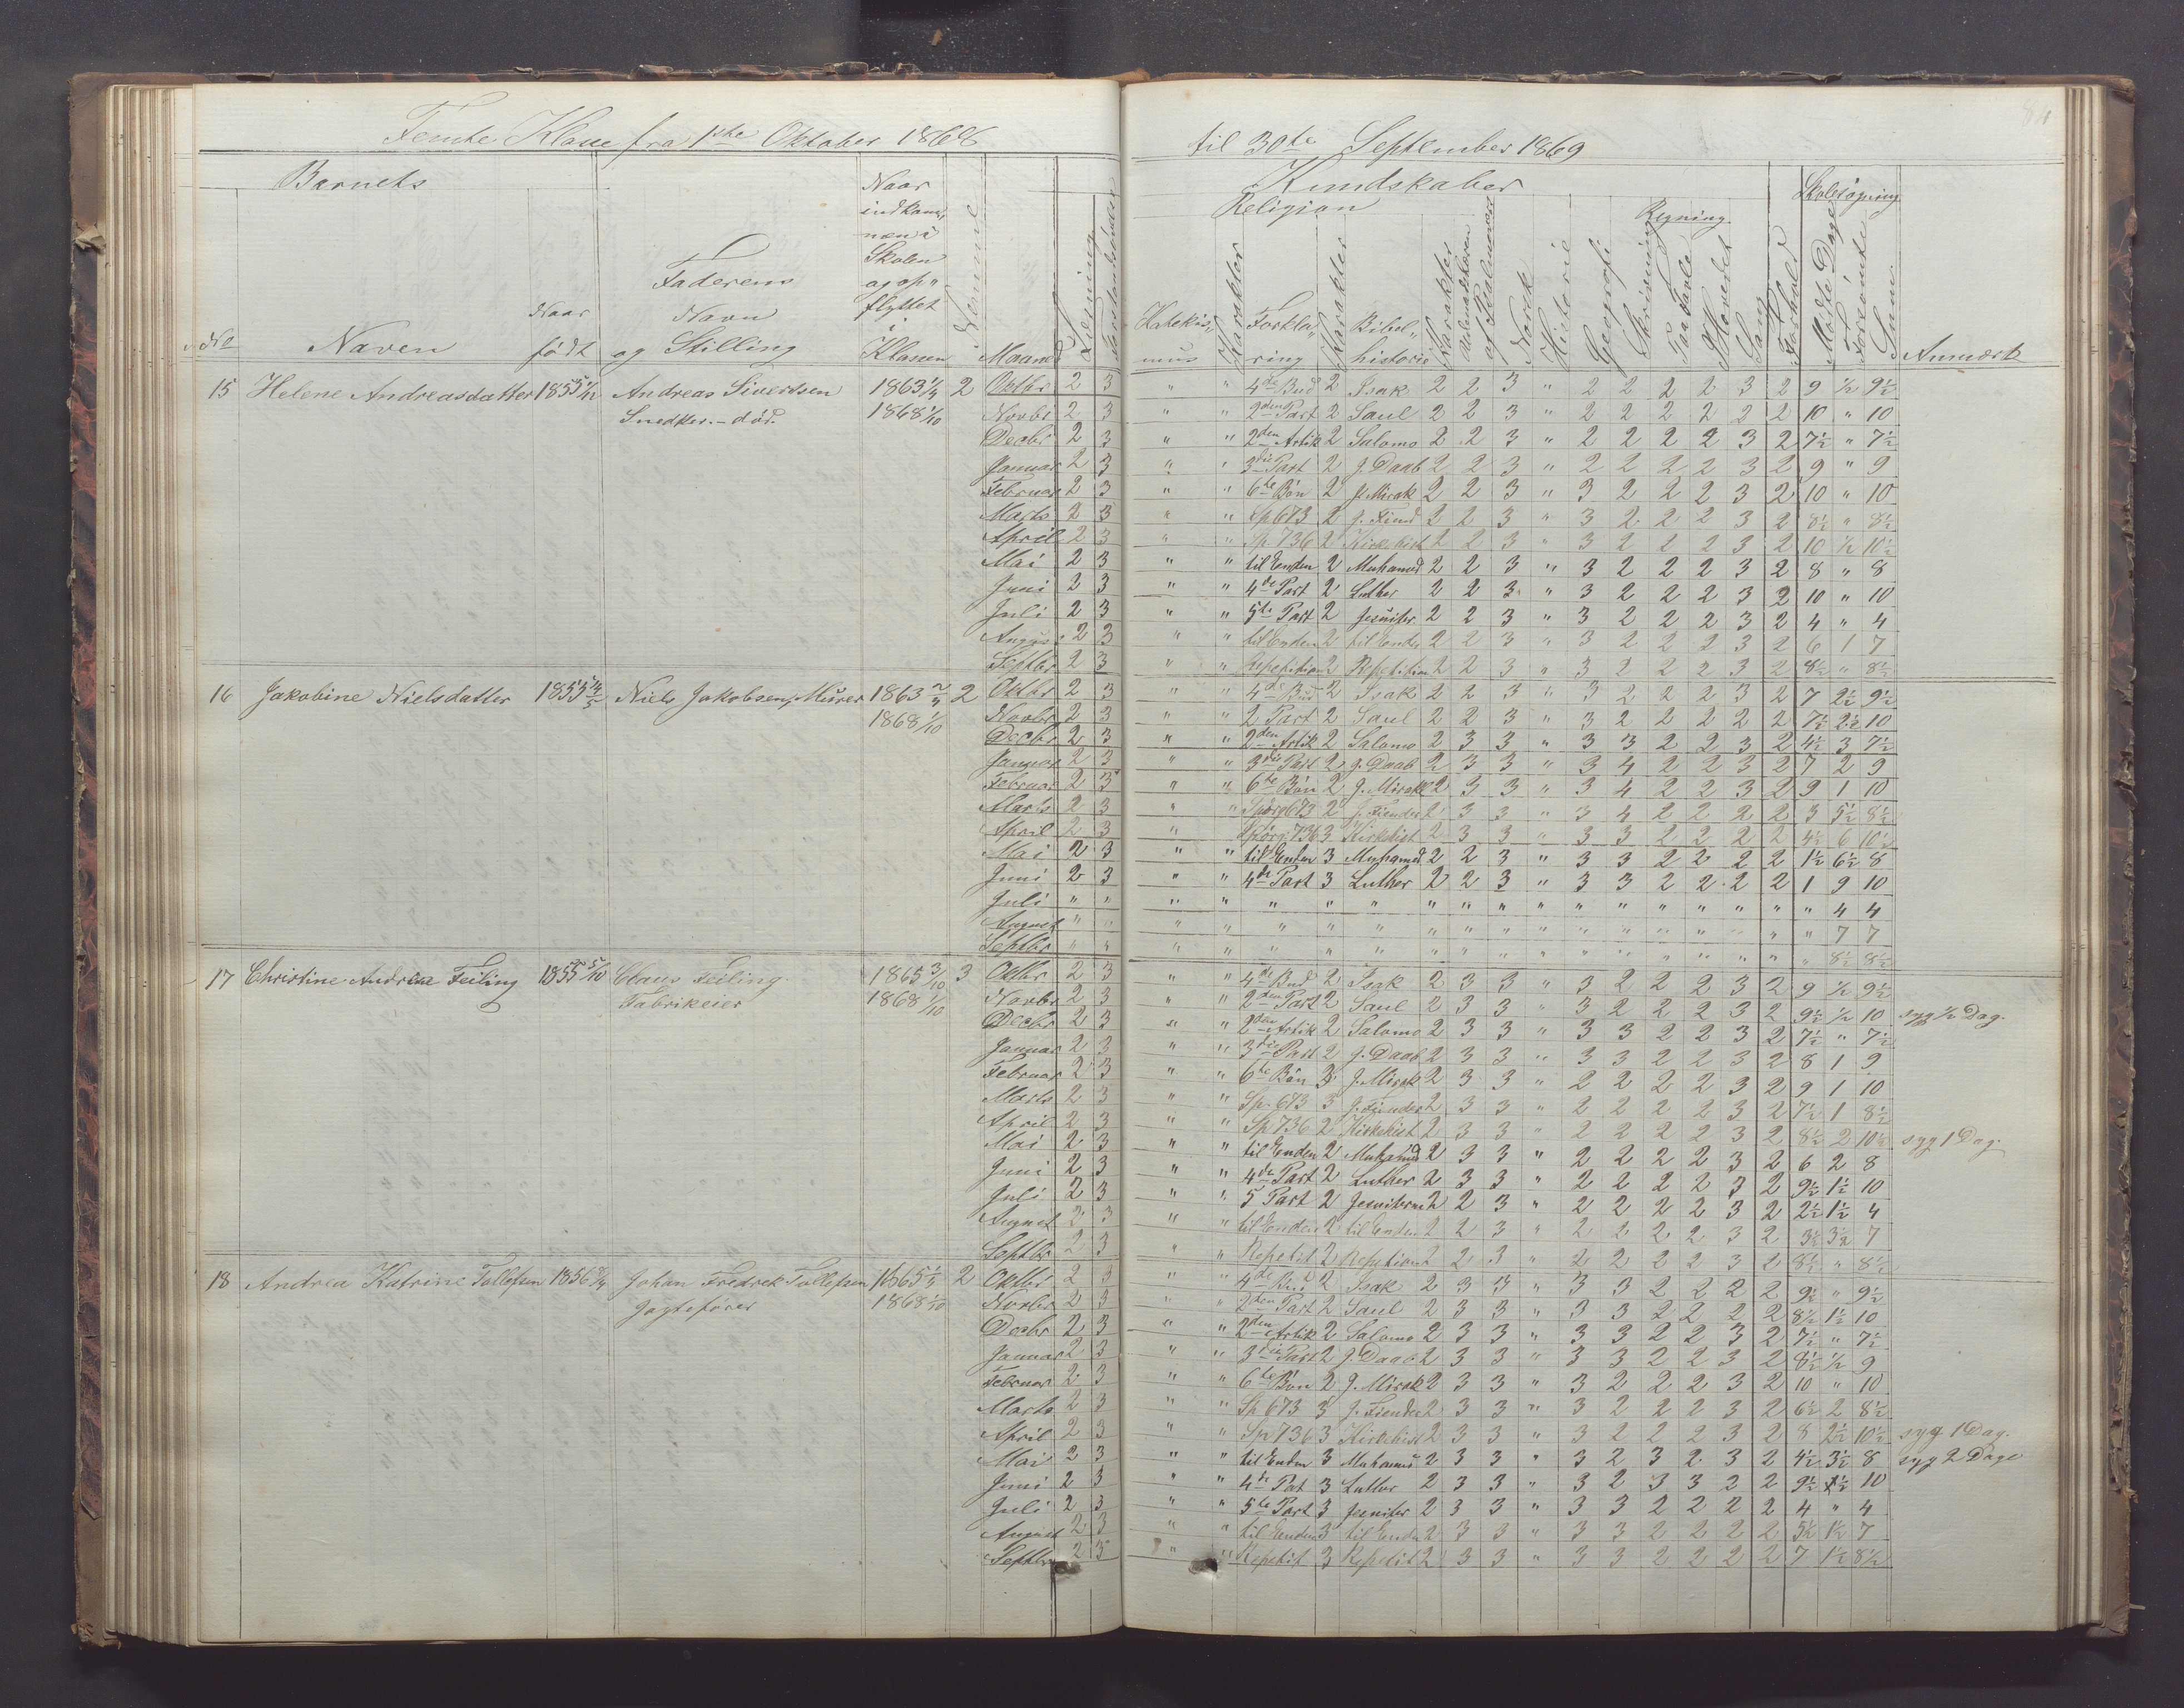 Femte Klasse fra 1ste Oktober 1868 til 30te September 1869
Barnets
Kundskaber
Skolesøgning
Religion
Regning
No Navn Naar født Faderens Navn og Stilling Naar indkommen i Skolen og opflyttet i Klassen Nemme Maaned Læsning Forstandsøvelser
Katekismus Karakter Forklaring Karakter Bibelhistorie Karakter Udenadslæsen af Psalmevers Norsk Historie Geografi Skrivning Paa Tavle I Hovedet Sang Forhold Mødte Dage Forsømte Sum Anmærk
15 Helene Andreasdatter 1855 Andreas Sivertsen 1863 1/4 2 Oktbr 2 3 " " 4de Bud 2 Isak 2 2 3 " 2 2 2 2 3 2 9 1/2 9 1/2
Snedker. - død. 1868 1/10 Novbr 2 3 " " 2den Part 2 Saul 2 2 3 " 2 2 2 2 2 2 10 " 10
Decbr 2 3 " " 2den Artik 2 Salomo 2 2 3 " 2 2 2 2 3 2 7 1/2 " 7 1/2
Januar 2 3 " " 3die Part 2 J. Daab 2 2 3 " 2 2 2 2 3 2 9 " 9
Februar 2 3 " " 6te Bøn 2 J. Mirak 2 2 3 " 3 2 2 2 3 2 10 " 10
Marts 2 3 " " Sp 673 2 J. Fiend 2 2 3 " 3 2 2 2 3 2 8 1/2 " 8 1/2
April 2 3 " " Sp 736 2 Kirkehist 2 2 3 " 3 2 2 2 3 2 10 1/2 10 1/2
Mai 2 3 " " til Enden 2 Muhamed 2 2 3 " 3 2 2 2 3 2 8 " 8
Juni 2 3 " " 4de Part 2 Luther 2 2 3 " 3 2 2 2 3 2 10 " 10
Juli 2 3 " " 5te Part 2 Jesuiter 2 2 3 " 3 2 2 2 3 2 4 " 4
August 2 3 " " til Enden 2 til Ende 2 2 3 " 3 2 2 2 3 2 6 1 7
Septbr 2 3 " " Repetition 2 Repetition 2 2 3 " 3 2 2 2 3 2 8 1/2 " 8 1/2
16 Jakobine Nielsdatter 1855 4/5 Niels Jakobsen, Murer 1863 2/4 2 Oktbr 2 3 " " 4de Bud 2 Isak 2 2 3 " 3 2 2 2 3 2 7 2 1/2 9 1/2
1868 1/10 Novbr 2 3 " " 2 Part 2 Saul 2 2 3 " 3 2 2 2 2 2 7 1/2 2 1/2 10
Decbr 2 3 " " 2den Artik 2 Salomo 2 3 3 " 3 3 2 2 3 2 4 1/2 3 7 1/2
Januar 2 3 " " 3die Part 2 J. Daab 2 3 3 " 3 4 2 2 3 2 7 2 9
Februar 2 3 " " 6te Bøn 2 J. Mirakl 2 3 3 " 3 4 2 2 3 2 9 1 10
Marts 2 3 " " Spørg 673 2 J. Fiender 2 3 3 " 3 4 2 2 2 2 3 5 1/2 8 1/2
April 2 3 " Spørg: 736 3 Kirkehist 2 3 3 " 3 3 2 2 2 2 4 1/2 6 10 1/2
Mai 2 3 " " til Enden 3 Muhamed 2 2 3 " 3 3 2 2 2 2 1 1/2 6 1/2 8
Juni 2 3 " " 4de Part 3 Luther 2 2 3 " 3 3 2 2 2 2 1 9 10
Juli " " " " " " " " " " " " " " " " " " 4 4
August " " " " " " " " " " " " " " " " " " 7 7
Septbr " " " " " " " " " " " " " " " " " " 8 1/2 8 1/2
17 Christine Andrea Feiling 1855 5/10 Claus Feiling 1865 3/10 3 Oktbr 2 3 " " 4de Bud 2 Isak 2 3 3 " 3 2 2 2 3 2 9 1/2 9 1/2
Fabrikeier 1868 1/10 Novbr 2 3 " " 2den Part 2 Saul 2 3 3 " 3 2 2 2 3 2 9 1/2 1/2 10 syg 1/2 Dag.
Decbr 2 3 " " 2den Artik 2 Salomo 2 3 3 " 3 3 2 2 3 2 7 1/2 " 7 1/2
Januar 2 3 " " 3die Part 2 J. Daab 2 3 3 " 3 3 2 2 3 2 8 1 9
Februar 2 3 " " 6te Bøn 3 J. Mirak 2 3 3 " 2 2 2 2 3 2 9 1 10
Marts 2 3 " " Sp. 673 3 J. Fiender 2 3 3 " 2 2 2 2 3 2 7 1/2 1 8 1/2
April 2 3 " " Sp 736 2 Kirkehist 2 3 3 " 2 2 2 2 3 2 8 1/2 2 10 1/2 syg 1 Dag.
Mai 2 3 " " til Enden 2 Muhamed 2 3 3 " 2 2 2 2 3 2 6 2 8
Juni 2 3 " " 4de Part 2 Luther 2 3 3 " 2 2 2 2 3 2 9 1/2 1 1/2 10
Juli 2 3 " " 5 Part 2 Jesuiterne 2 2 3 " 2 2 2 2 3 2 2 1/2 1 1/2 4
August 2 3 " " til Enden 2 til Enden 2 2 3 " 2 2 2 2 3 2 3 1/2 3 1/2 7
Septbr 2 3 " " Repetit 2 Repetition 2 2 3 " 2 2 2 2 3 2 8 1/2 " 8 1/2
18 Andrea Katrine Tollefsen 1856 Johan Fredrek Tollefsen 1865 1/4 2 Oktbr 2 3 " " 4de Bud 2 Isak 2 3 3 " 3 3 2 2 2 2 9 1/2 " 9 1/2
Jagtefører 1868 1/10 Novbr 2 3 " " 2den Part 2 Saul 2 3 3 " 3 3 2 2 2 2 8 1/2 1 1/2 10
Decbr 2 3 " " 2den Artik 2 Salomo 2 3 3 " 3 3 2 2 3 2 7 1/2 " 7 1/2
Januar 2 3 " " 3die Part 2 J. Daab 2 3 3 " 3 3 2 2 3 2 8 1/2 1/2 9
Februar 2 3 " " 6te Bøn 2 J. Mirak 2 3 3 " 3 2 2 2 3 2 10 " 10
Marts 2 3 " " Sp 673 3 J. Fiender 2 3 3 " 3 2 2 2 3 2 6 1/2 2 8 1/2
April 2 3 " " Sp 736 3 Kirkehist 2 3 3 " 3 2 2 2 3 2 8 2 1/2 10 1/2 syg 1 Dag.
Mai 2 3 " " til Enden 3 Muhamed 2 3 3 " 3 2 3 2 3 2 4 1/2 3 1/2 8 syg 2 Dage
Juni 2 3 " " 4de Pat 3 Luther 2 3 3 " 3 2 3 3 2 2 9 1/2 1/2 10
Juli 2 3 " " 5te Part 3 Jesuiter 2 3 3 " 3 3 2 2 2 2 4 " 4
August 2 3 " " til Enden 3 til Ende 2 3 3 " 3 3 2 2 2 2 5 1/2 1 1/2 7
Septbr 2 3 " " Repetit 3 Repetit 2 3 3 " 3 3 2 2 2 2 7 1 1/2 8 1/2